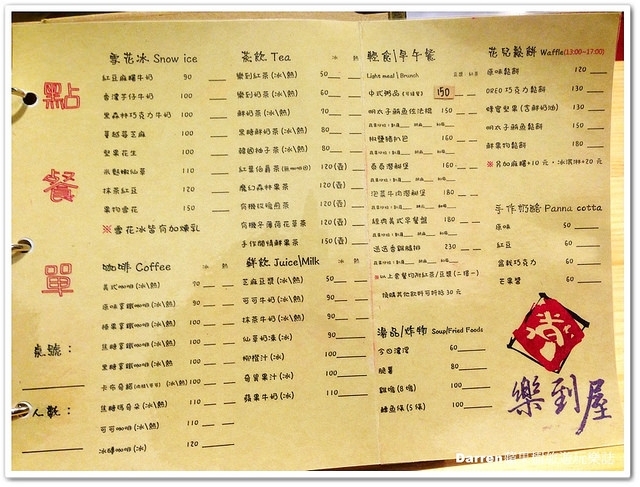 點餐單
桌號：
人數：
雪花冰 Snow ice
紅豆麻糬牛奶 90
香濃芋仔牛奶 100
黑森林巧克力牛奶 100
蔓越莓芝麻 100
堅果花生 100
米麩嫩仙草 110
抹茶紅豆 120
果物雪花 150
※雪花冰皆有加煉乳
咖啡 Coffee 冰 熱
美式咖啡(冰\熱) 70
原味拿鐵咖啡(冰\熱) 90
榛果拿鐵咖啡(冰\熱) 100
焦糖拿鐵咖啡(冰\熱) 100
黑糖拿鐵咖啡(冰\熱) 100
卡布奇諾 (冰\熱) 100
焦糖瑪奇朵(冰\熱) 110
可可咖啡(冰\熱) 110
冰磚咖啡(冰) 120
茶飲 Tea 冰 熱
樂到紅茶(冰\熱) 50
樂到奶茶(冰\熱) 60
鮮奶茶(冰\熱) 70
黑糖鮮奶茶(冰\熱) 80
韓國柚子茶(冰\熱) 80
紅葉伯爵茶 120(壺)
魔幻森林果茶 120(壺)
有機玫瑰煎茶 120(壺)
有機冬薄荷花草茶 120(壺)
手作閒情鮮果茶 150(壺)
鮮飲 Juice\Milk 冰 熱
芝麻豆漿(冰\熱) 50
可可牛奶(冰\熱) 90
抹茶牛奶(冰\熱) 90
仙草奶凍(冰) 90
柳橙汁(冰) 100
奇異果汁(冰) 100
蘋果牛奶(冰) 110
輕食\早午餐
Light meal \ Brunch
中式粥品 150
明太子鮪魚佐法棍 150
椒鹽豬扒包 160
香香潛艇堡 160
泡菜牛肉潛艇堡 180
經典美式早餐盤 180
迷迭香雞腿排 230
※以上套餐均附紅茶/豆漿(二擇一)
換購其他飲料可折抵30元
湯品/炸物 Soup/Fried Foods
今日濃湯 60
脆薯 80
雞塊(8塊) 100
鱈魚條(5條) 100
花兒鬆餅 Waffle(13:00~17:00)
原味鬆餅 120
OREO巧克力鬆餅 130
蜂蜜堅果(含鮮奶油) 130
明太子鮪魚鬆餅 150
鮮果物鬆餅 180
※另加麻糬+10元，冰淇淋+20元
手作奶酪 Panna cotta
原味 50
紅豆 60
盆栽巧克力 60
芒果醬 60
樂到屋
Darren